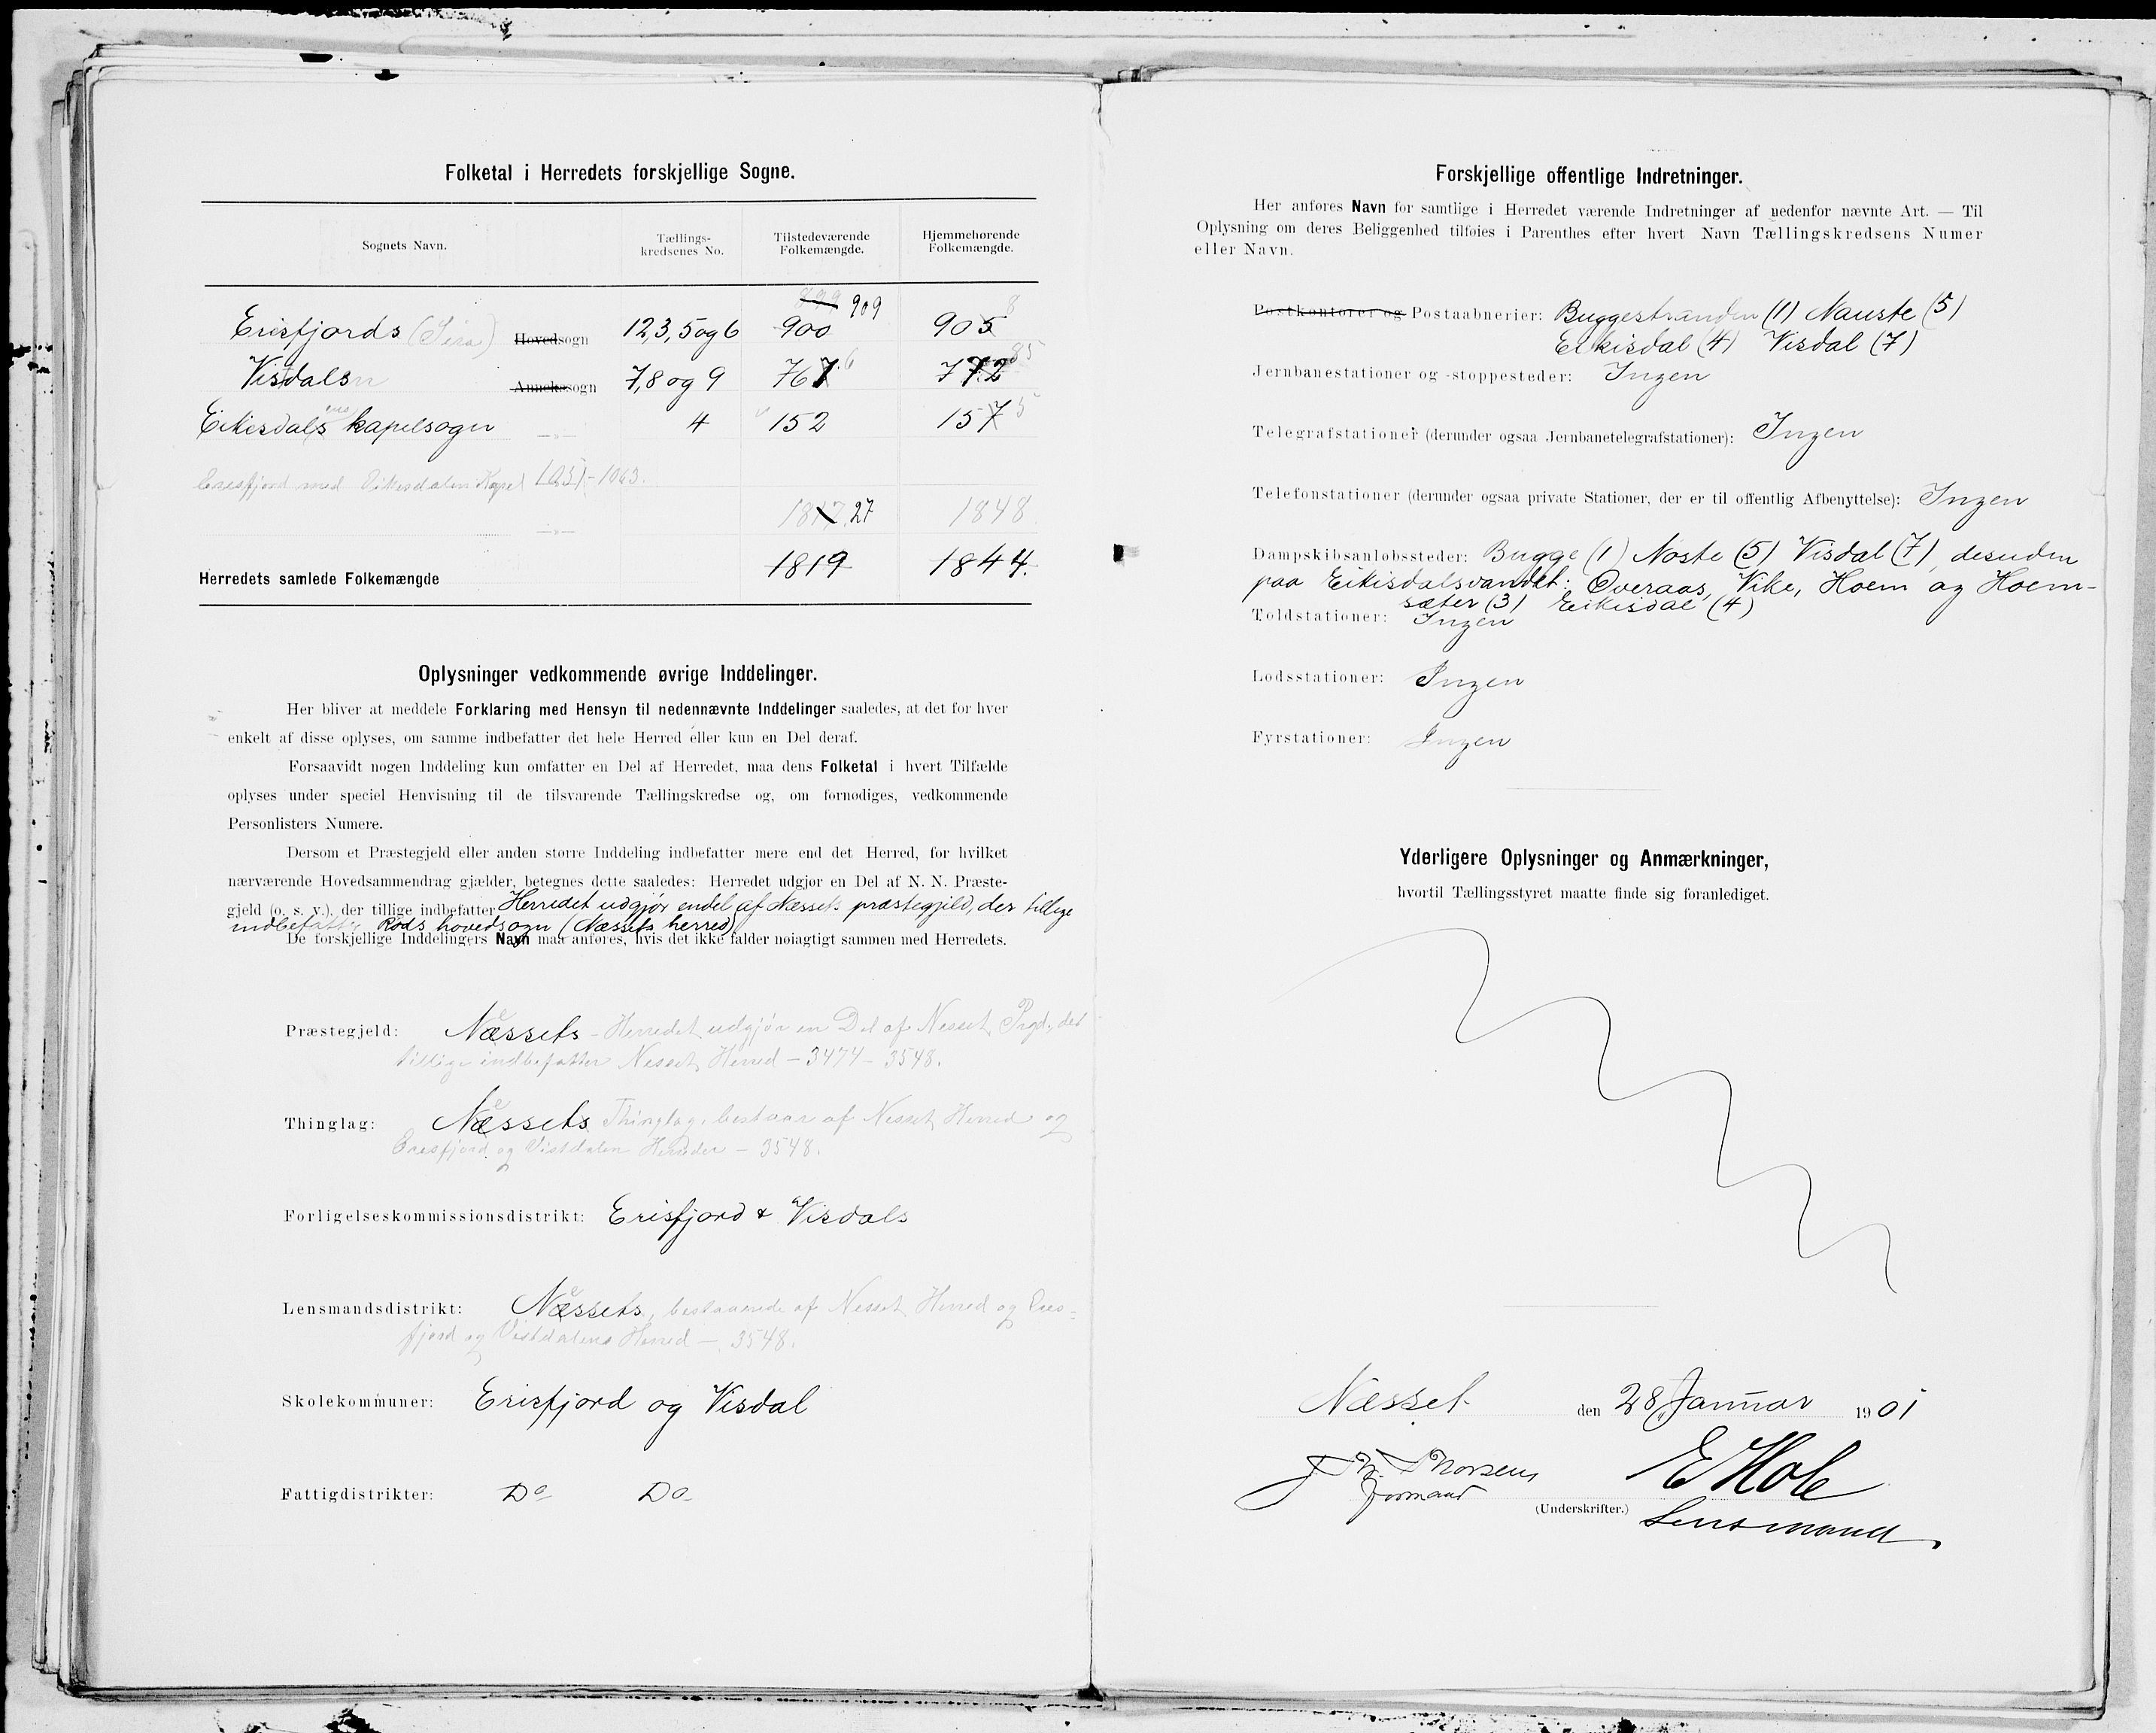 Folketal i Herredets forskjellige Sogne.
Sognets Navn. Tællings-kredsenes No. Tilstedeværende Folkemængde. Hjemmehørende Folkemængde.
899 909 8
Erisfjords (Sira) Hovedsogn 1,2,3,5 og 6 900 905
Visdals Annekssogn 7,8 og 9 767 6 772 85
Eikisdals kapelsogn 4 152 157 5
Eresfjord med Eikesdalen Kapel 1051-1063.
1817 27 1848
Herredets samlede Folkemængde 1819 1844.
Oplysninger vedkommende øvrige Inddelinger.
Her bliver at meddele Forklaring med Hensyn til nedennævnte Inddelinger saaledes, at det for hver
enkelt af disse oplyses, om samme indbefatter det hele Herred eller kun en Del deraf.
Forsaavidt nogen Inddeling kun omfatter en Del af Herredet, maa dens Folketal i hvert Tilfælde
oplyses under speciel Henvisning til de tilsvarende Tællingskredse og, om fornødiges, vedkommende
Personlisters Numere.
Dersom et Præstegjeld eller anden større Inddeling indbefatter mere end det Herred, for hvilket
nærværende Hovedsammendrag gjælder, betegnes dette saaledes: Herredet udgjør en Del af N. N. Præste-
gjeld (o. s. v.), der tillige indbefatter Herredet udgjør endel af Næssets præstegjeld, der tillige
indbefatter Røds hovedsogn (Næssets herred)
De forskjellige Inddelingers Navn maa anføres, hvis det ikke falder nøiagtigt sammen med Herredets.
Præstegjeld: Næssets - Herredet udgjør en Del af Nesset Prgd., der
tillige indbefatter Nesset Herred - 3474 - 3548.
Thinglag: Næssets Thinglag, bestaar af Nesset Herred og
Eresfjord og Vistdalen Herreder - 3548.
Forligelseskommissionsdistrikt: Erisfjord & Visdals
Lensmandsdistrikt: Næssets, bestaaende af Nesset Herred og Eres-
fjord og Vistdalens Herred - 3548.
Skolekommuner: Erisfjord og Visdal
Fattigdistrikter: Do Do
Forskjellige offentlige Indretninger.
Her anføres Navn for samtlige i Herredet værende Indretninger af nedenfor nævnte Art. — Til
Oplysning om deres Beliggenhed tilføies i Parenthes efter hvert Navn Tællingskredsens Numer
eller Navn.
Postkontorer og Postaabnerier: Buggestranden (1) Nauste (5)
Eikisdal (4) Visdal (7)
Jernbanestationer og -stoppesteder: Ingen
Telegrafstationer (derunder ogsaa Jernbanetelegrafstationer): Ingen
Telefonstationer (derunder ogsaa private Stationer, der er til offentlig Afbenyttelse): Ingen
Dampskibsanløbssteder: Bugge (1) Nøste (5) Visdal (7), desuden
paa Eikisdalsvandet: Øveraas, Vike, Hoem og Hoem-
sæter (3) Eikisdal (4)
Toldstationer: Ingen
Lodsstationer: Ingen
Fyrstationer: Ingen
Yderligere Oplysninger og Anmærkninger,
hvortil Tællingsstyret maatte finde sig foranlediget.
Næsset den 28 Januar 1901
E Hole
formand
(Underskrifter.)
Lensmand